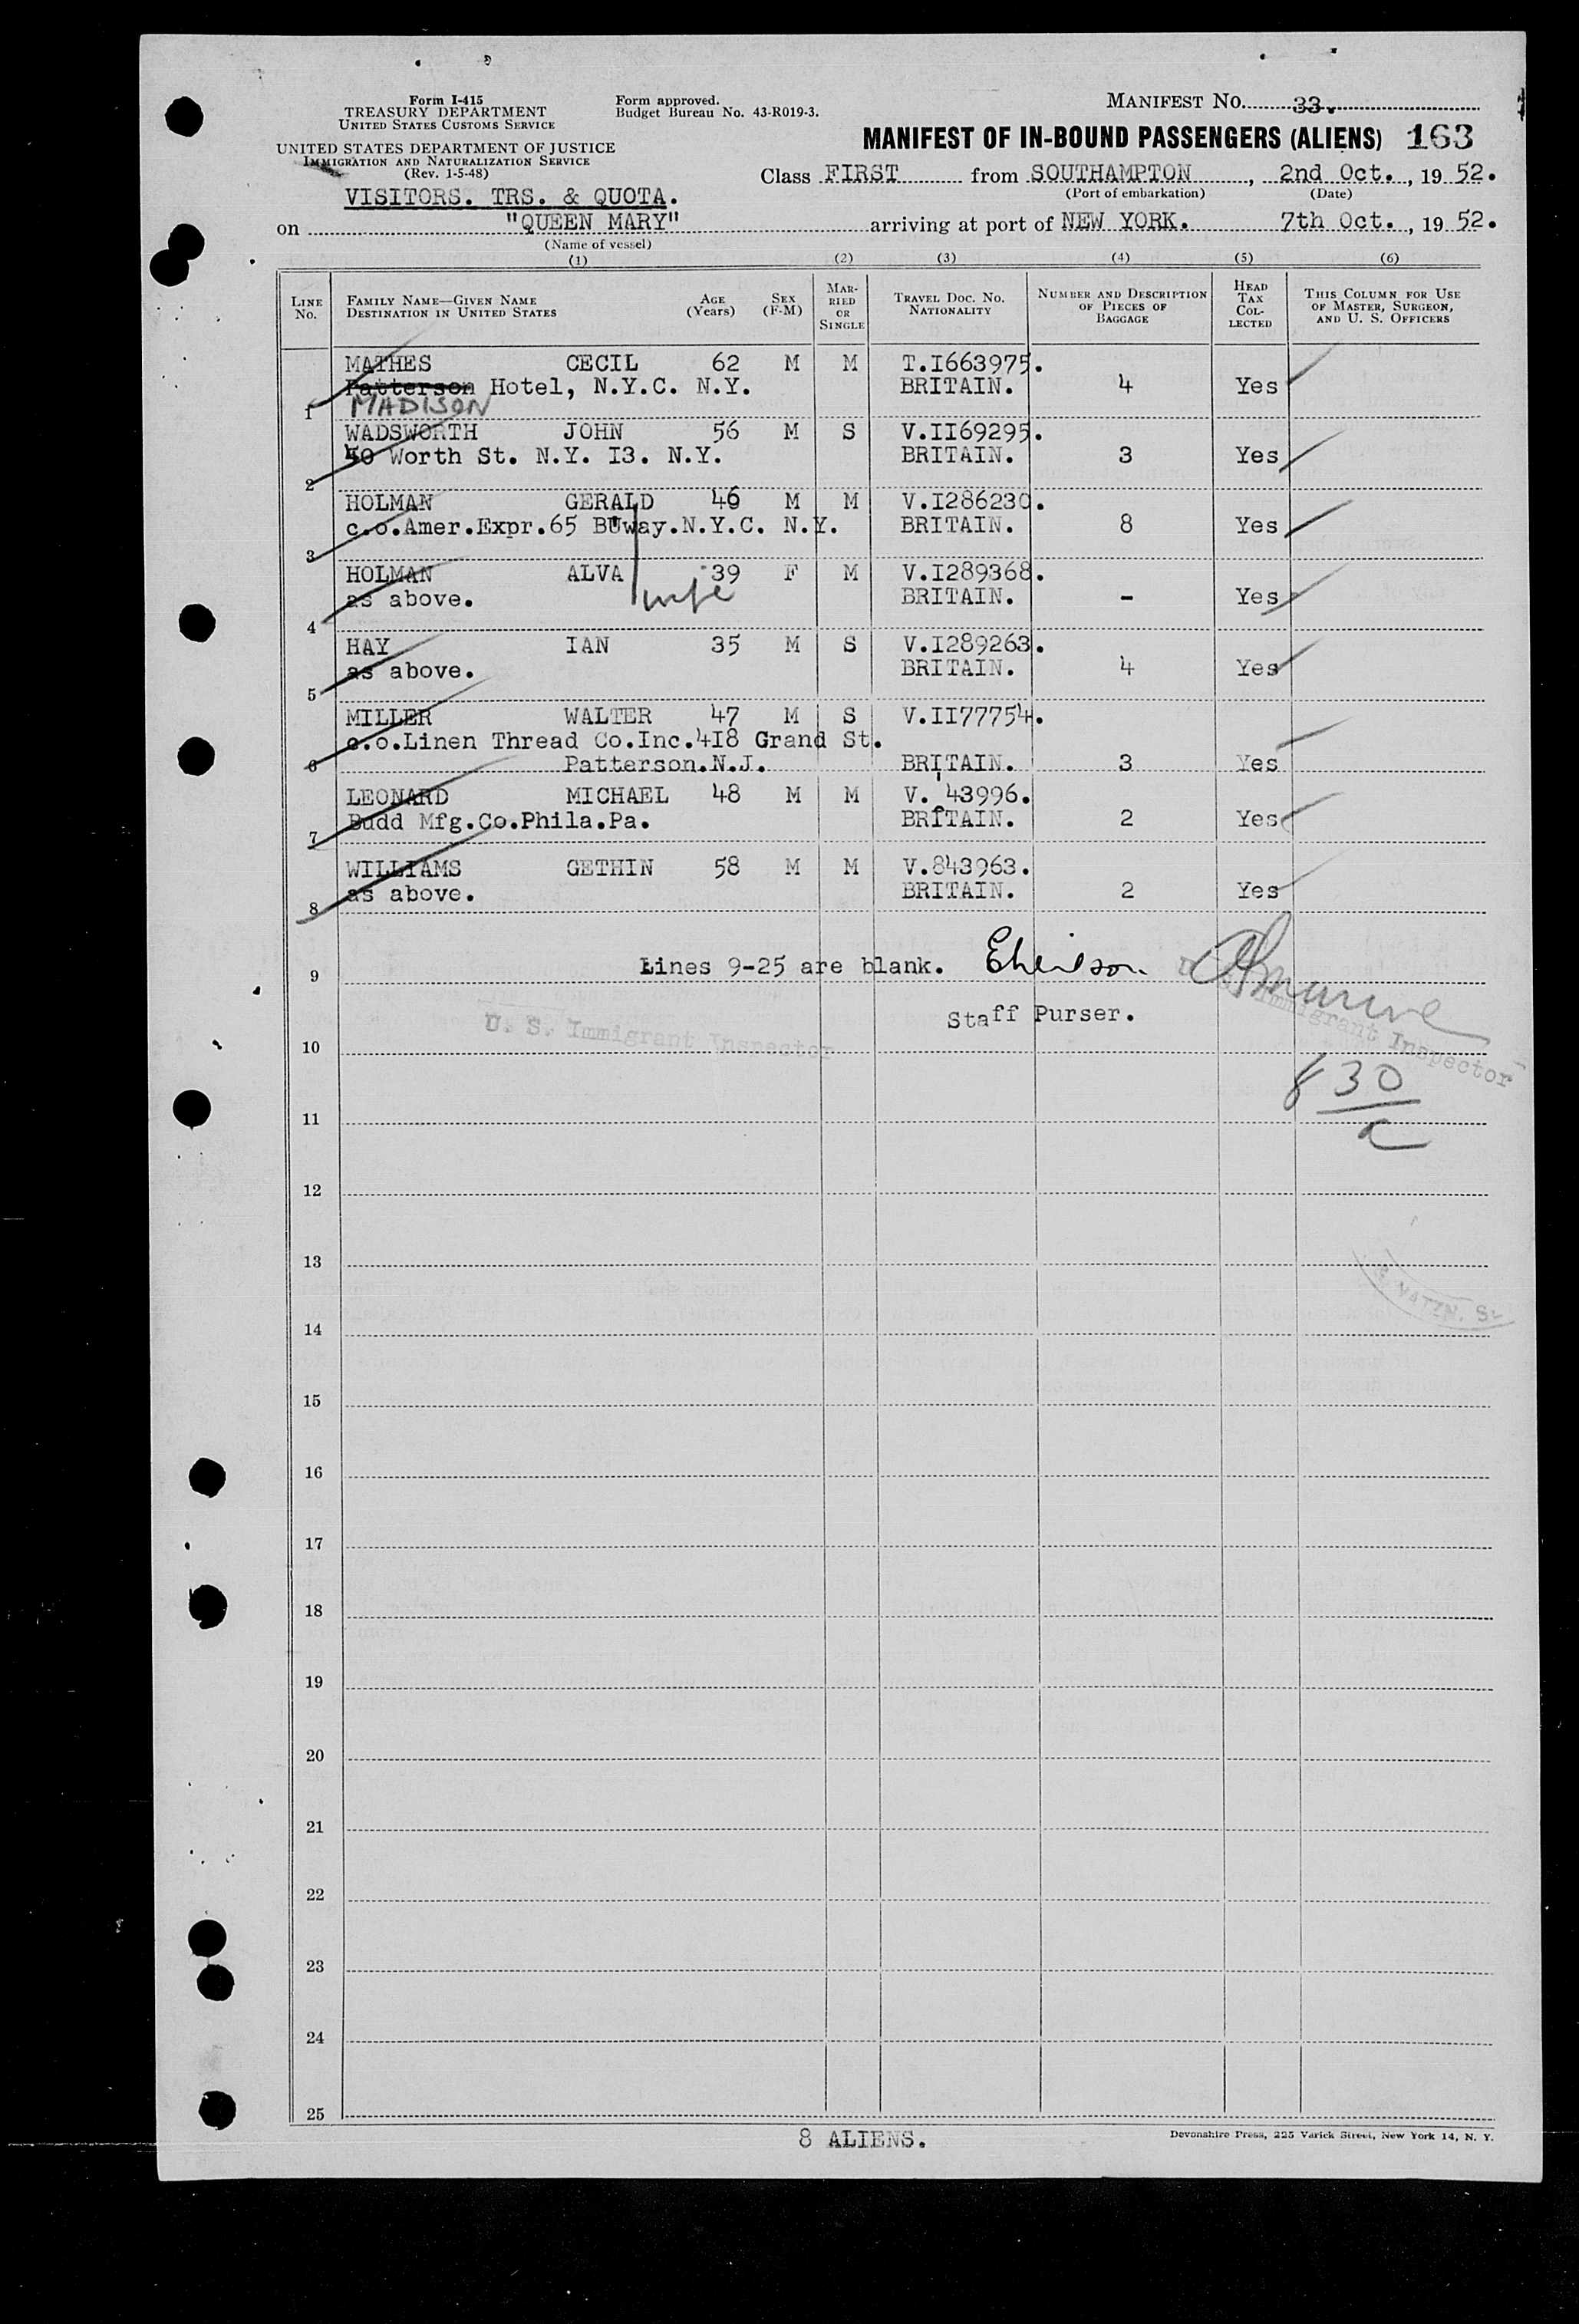 Form I-415
TREASURY DEPARTMENT
UNITED STATES CUSTOMS SERVICE
UNITED STATES DEPARTMENT OF JUSTICE
IMMIGRATION AND NATURALIZATION SERVICE
(Rev. 1-5-48)
Form approved.
Budget Bureau No. 43-R019-3.
MANIFEST NO. 33.
MANIFEST OF IN-BOUND PASSENGERS (ALIENS) 163
Class FIRST from SOUTHAMPTON, 2nd Oct., 1952.
(Port of embarkation) (Date)
VISITORS. TRS. & QUOTA.
on "QUEEN MARY" arriving at port of NEW YORK. 7th Oct., 1952.
(Name of vessel)
(1) (2) (3) (4) (5) (6)
LINE NO. FAMILY NAME—GIVEN NAME DESTINATION IN UNITED STATES AGE (Years) SEX (F-M) MARRIED OR SINGLE TRAVEL DOC. NO. NATIONALITY NUMBER AND DESCRIPTION OF PIECES OF BAGGAGE HEAD TAX COLLECTED THIS COLUMN FOR USE OF MASTER, SURGEON, AND U. S. OFFICERS
MATHES CECIL 62 M M T.I663975.
Patterson Hotel, N.Y.C. N.Y. BRITAIN. 4 Yes
1 MADISON
WADSWORTH JOHN 56 M S V.II69295.
40 Worth St. N.Y. I3. N.Y. BRITAIN. 3 Yes
2
HOLMAN GERALD 46 M M V.I286230.
c.o.Amer.Expr.65 BUway.N.Y.C. N.Y. BRITAIN. 8 Yes
3
HOLMAN ALVA 39 F M V.I289368.
as above. wife BRITAIN. - Yes
4
HAY IAN 35 M S V.I289263.
as above. BRITAIN. 4 Yes
5
MILLER WALTER 47 M S V.II77754.
c.o.Linen Thread Co.Inc.418 Grand St.
6 Patterson.N.J. BRITAIN. 3 Yes
LEONARD MICHAEL 48 M M V. 43996.
Budd Mfg.Co.Phila.Pa. BRITAIN. 2 Yes
7
WILLIAMS GETHIN 58 M M V.843963.
as above. BRITAIN. 2 Yes
8
9 Lines 9-25 are blank.
Staff Purser.
U. S. Immigrant Inspector
U. S. Immigrant Inspector
10
830
11
12
13
14
15
16
17
18
19
20
21
22
23
24
25
8 ALIENS.
Devonshire Press, 225 Varick Street, New York 14, N. Y.